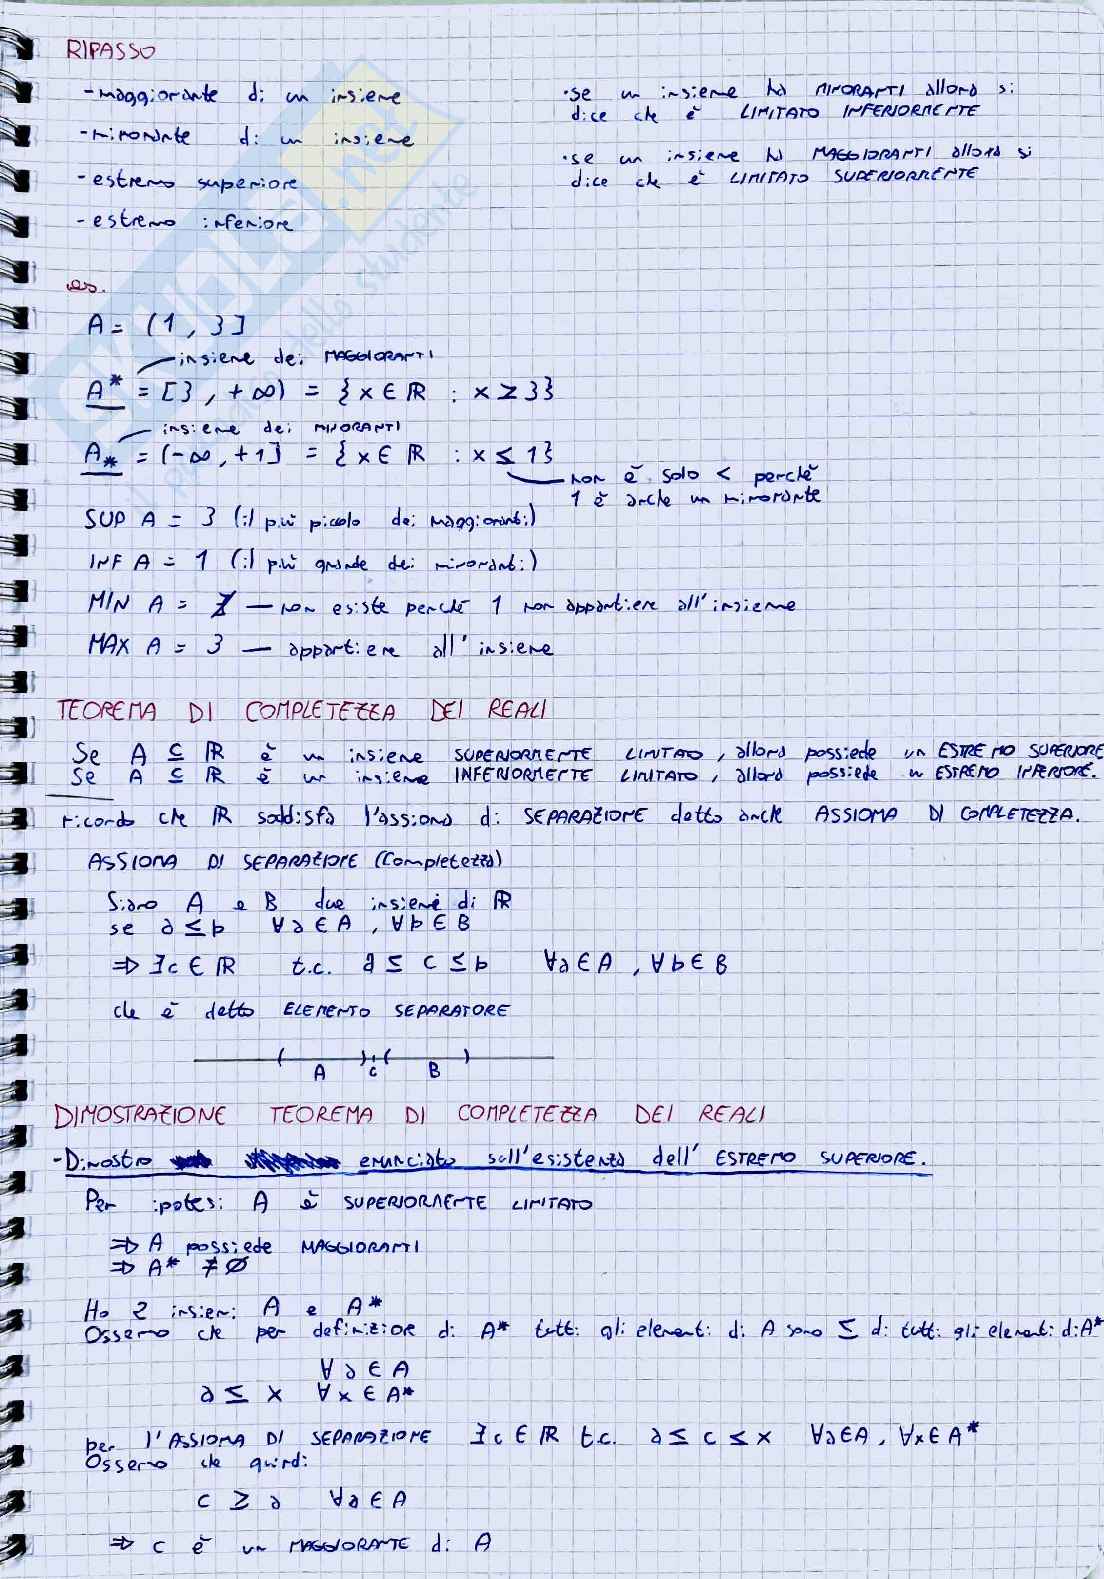 RIPASSO
- maggiorante di un insieme
- minorante di un insieme
- estremo superiore
- estremo inferiore
• se un insieme ha MINORANTI allora si
dice che è LIMITATO INFERIORMENTE
• se un insieme ha MAGGIORANTI allora si
dice che è LIMITATO SUPERIORMENTE
es.
A = (1, 3]
insieme dei MAGGIORANTI
A* = [3, +∞) = {x ∈ ℝ : x ≥ 3}
insieme dei MINORANTI
A* = (-∞, +1] = {x ∈ ℝ : x ≤ 1}
non è solo < perché
1 è anche un minorante
SUP A = 3 (il più piccolo dei maggioranti)
INF A = 1 (il più grande dei minoranti)
MIN A = ∄ — non esiste perché 1 non appartiene all'insieme
MAX A = 3 — appartiene all'insieme
TEOREMA DI COMPLETEZZA DEI REALI
Se A ⊆ ℝ è un insieme SUPERIORMENTE LIMITATO, allora possiede un ESTREMO SUPERIORE
Se A ⊆ ℝ è un insieme INFERIORMENTE LIMITATO, allora possiede un ESTREMO INFERIORE.
ricordo che ℝ soddisfa l'assioma di SEPARAZIONE detto anche ASSIOMA DI COMPLETEZZA.
ASSIOMA DI SEPARAZIONE (Completezza)
Siano A e B due insiemi di ℝ
se a ≤ b ∀a ∈ A, ∀b ∈ B
⇒ ∃c ∈ ℝ t.c. a ≤ c ≤ b ∀a ∈ A, ∀b ∈ B
che è detto ELEMENTO SEPARATORE
A c B
DIMOSTRAZIONE TEOREMA DI COMPLETEZZA DEI REALI
- Dimostro enunciato sull'esistenza dell'ESTREMO SUPERIORE.
Per ipotesi A è SUPERIORMENTE LIMITATO
⇒ A possiede MAGGIORANTI
⇒ A* ≠ ∅
Ho 2 insiemi A e A*
Osservo che per definizione di A* tutti gli elementi di A sono ≤ di tutti gli elementi di A*
∀a ∈ A
a ≤ x ∀x ∈ A*
per l'ASSIOMA DI SEPARAZIONE ∃c ∈ ℝ t.c. a ≤ c ≤ x ∀a ∈ A, ∀x ∈ A*
Osservo che quindi
c ≥ a ∀a ∈ A
⇒ c è un MAGGIORANTE di A